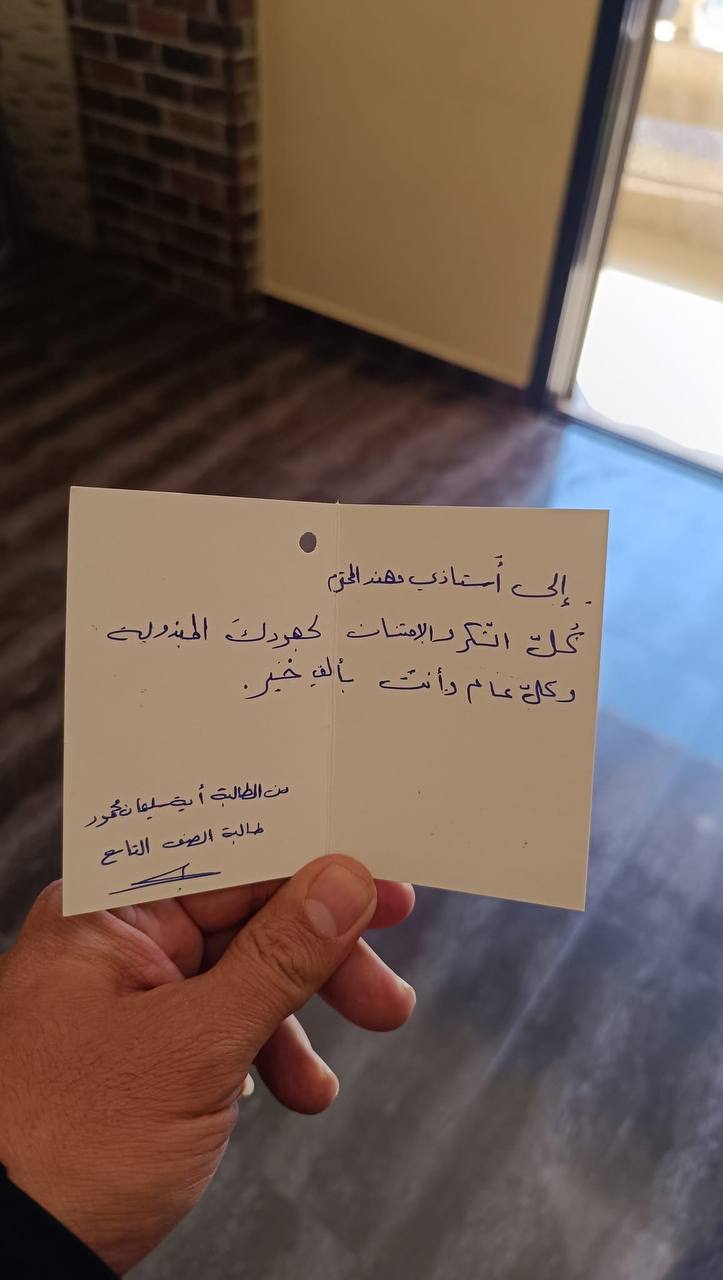 إلى أُستاذي مهند المحترم
كُلّ الشّكر والامتنان لجهودكَ المبذولة
وكلّ عام وأنتَ بألفِ خَير.
من الطالبة آية سليمان محمود
طالبة الصف التاسع